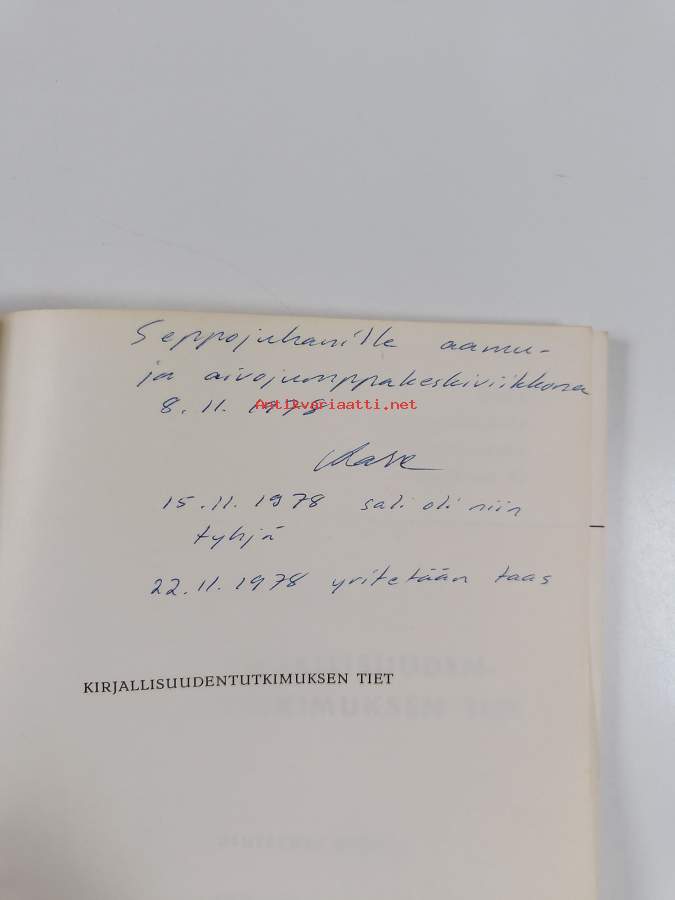 Seppojuhanille aamu-
ja aivojumppakeskiviikkona
8.11.1978
Antikvariaatti.net
15.11.1978 sali oli niin
tyhjä
22.11.1978 yritetään taas
KIRJALLISUUDENTUTKIMUKSEN TIET